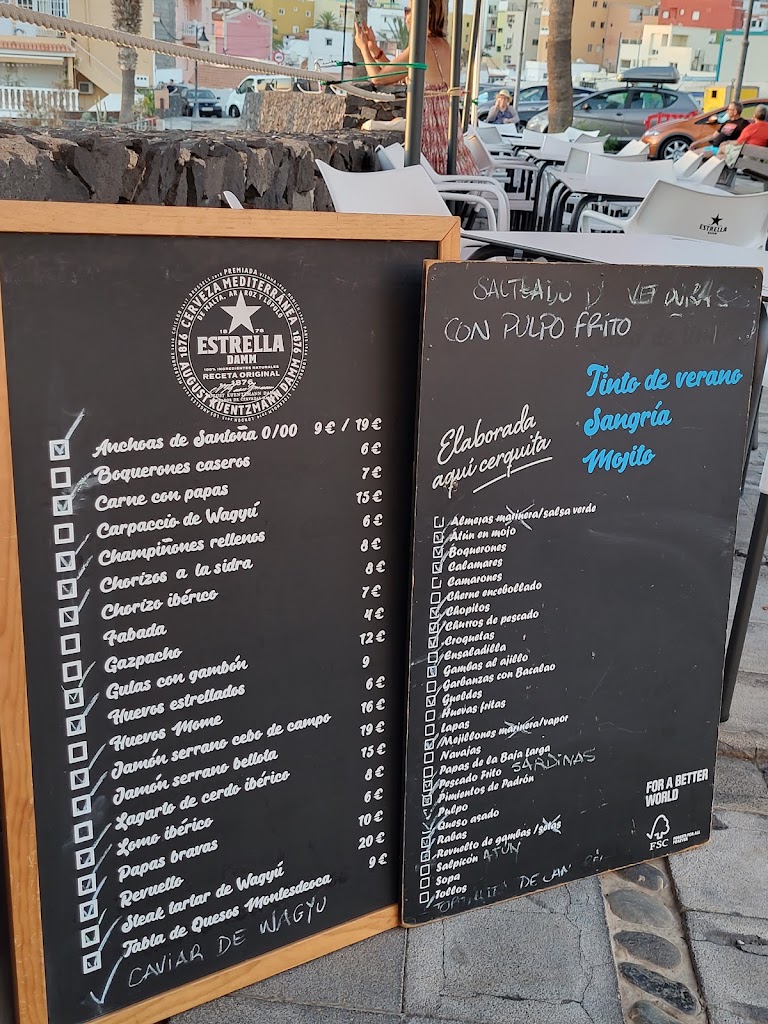 PREMIADA
CERVEZA MEDITERRÁNEA
DE MALTA, ARROZ Y LÚPULO
1876
1876
1876
ESTRELLA
DAMM
100% INGREDIENTES NATURALES
RECETA ORIGINAL
1876
AUGUST KUENTZMANN DAMM
Anchoas de Santoña 0/00 9€ / 19€
Boquerones caseros 6€
Carne con papas 7€
Carpaccio de Wagyú 15€
Champiñones rellenos 6€
Chorizos a la sidra 8€
Chorizo ibérico 8€
Fabada 7€
Gazpacho 4€
Gulas con gambón 12€
Huevos estrellados 9
Huevos Mome 6€
Jamón serrano cebo de campo 16€
Jamón serrano bellota 19€
Lagarto de cerdo ibérico 15€
Lomo ibérico 8€
Papas bravas 6€
Revuelto 10€
Steak tartar de Wagyú 20€
Tabla de Quesos Montesdeoca 9€
CAVIAR DE WAGYU
SALTEADO D VERDURAS
CON PULPO FRITO
Tinto de verano
Sangría
Mojito
Elaborada
aquí cerquita
Almejas marinera/salsa verde
Atún en mojo
Boquerones
Calamares
Camarones
Cherne encebollado
Chopitos
Churros de pescado
Croquetas
Ensaladilla
Gambas al ajillo
Garbanzas con Bacalao
Gueldes
Huevas fritas
Lapas
Mejillones marinera/vapor
Navajas
Papas de la Baja Larga
Pescado Frito SARDINAS
Pimientos de Padrón
Pulpo
Queso asado
Rabas
Revuelto de gambas /setas
Salpicón ATUN
Sopa
Tollos
DE
FOR A BETTER
WORLD
FSC
FORESTS FOR ALL
FOREVER
ESTRELLA
DAMM